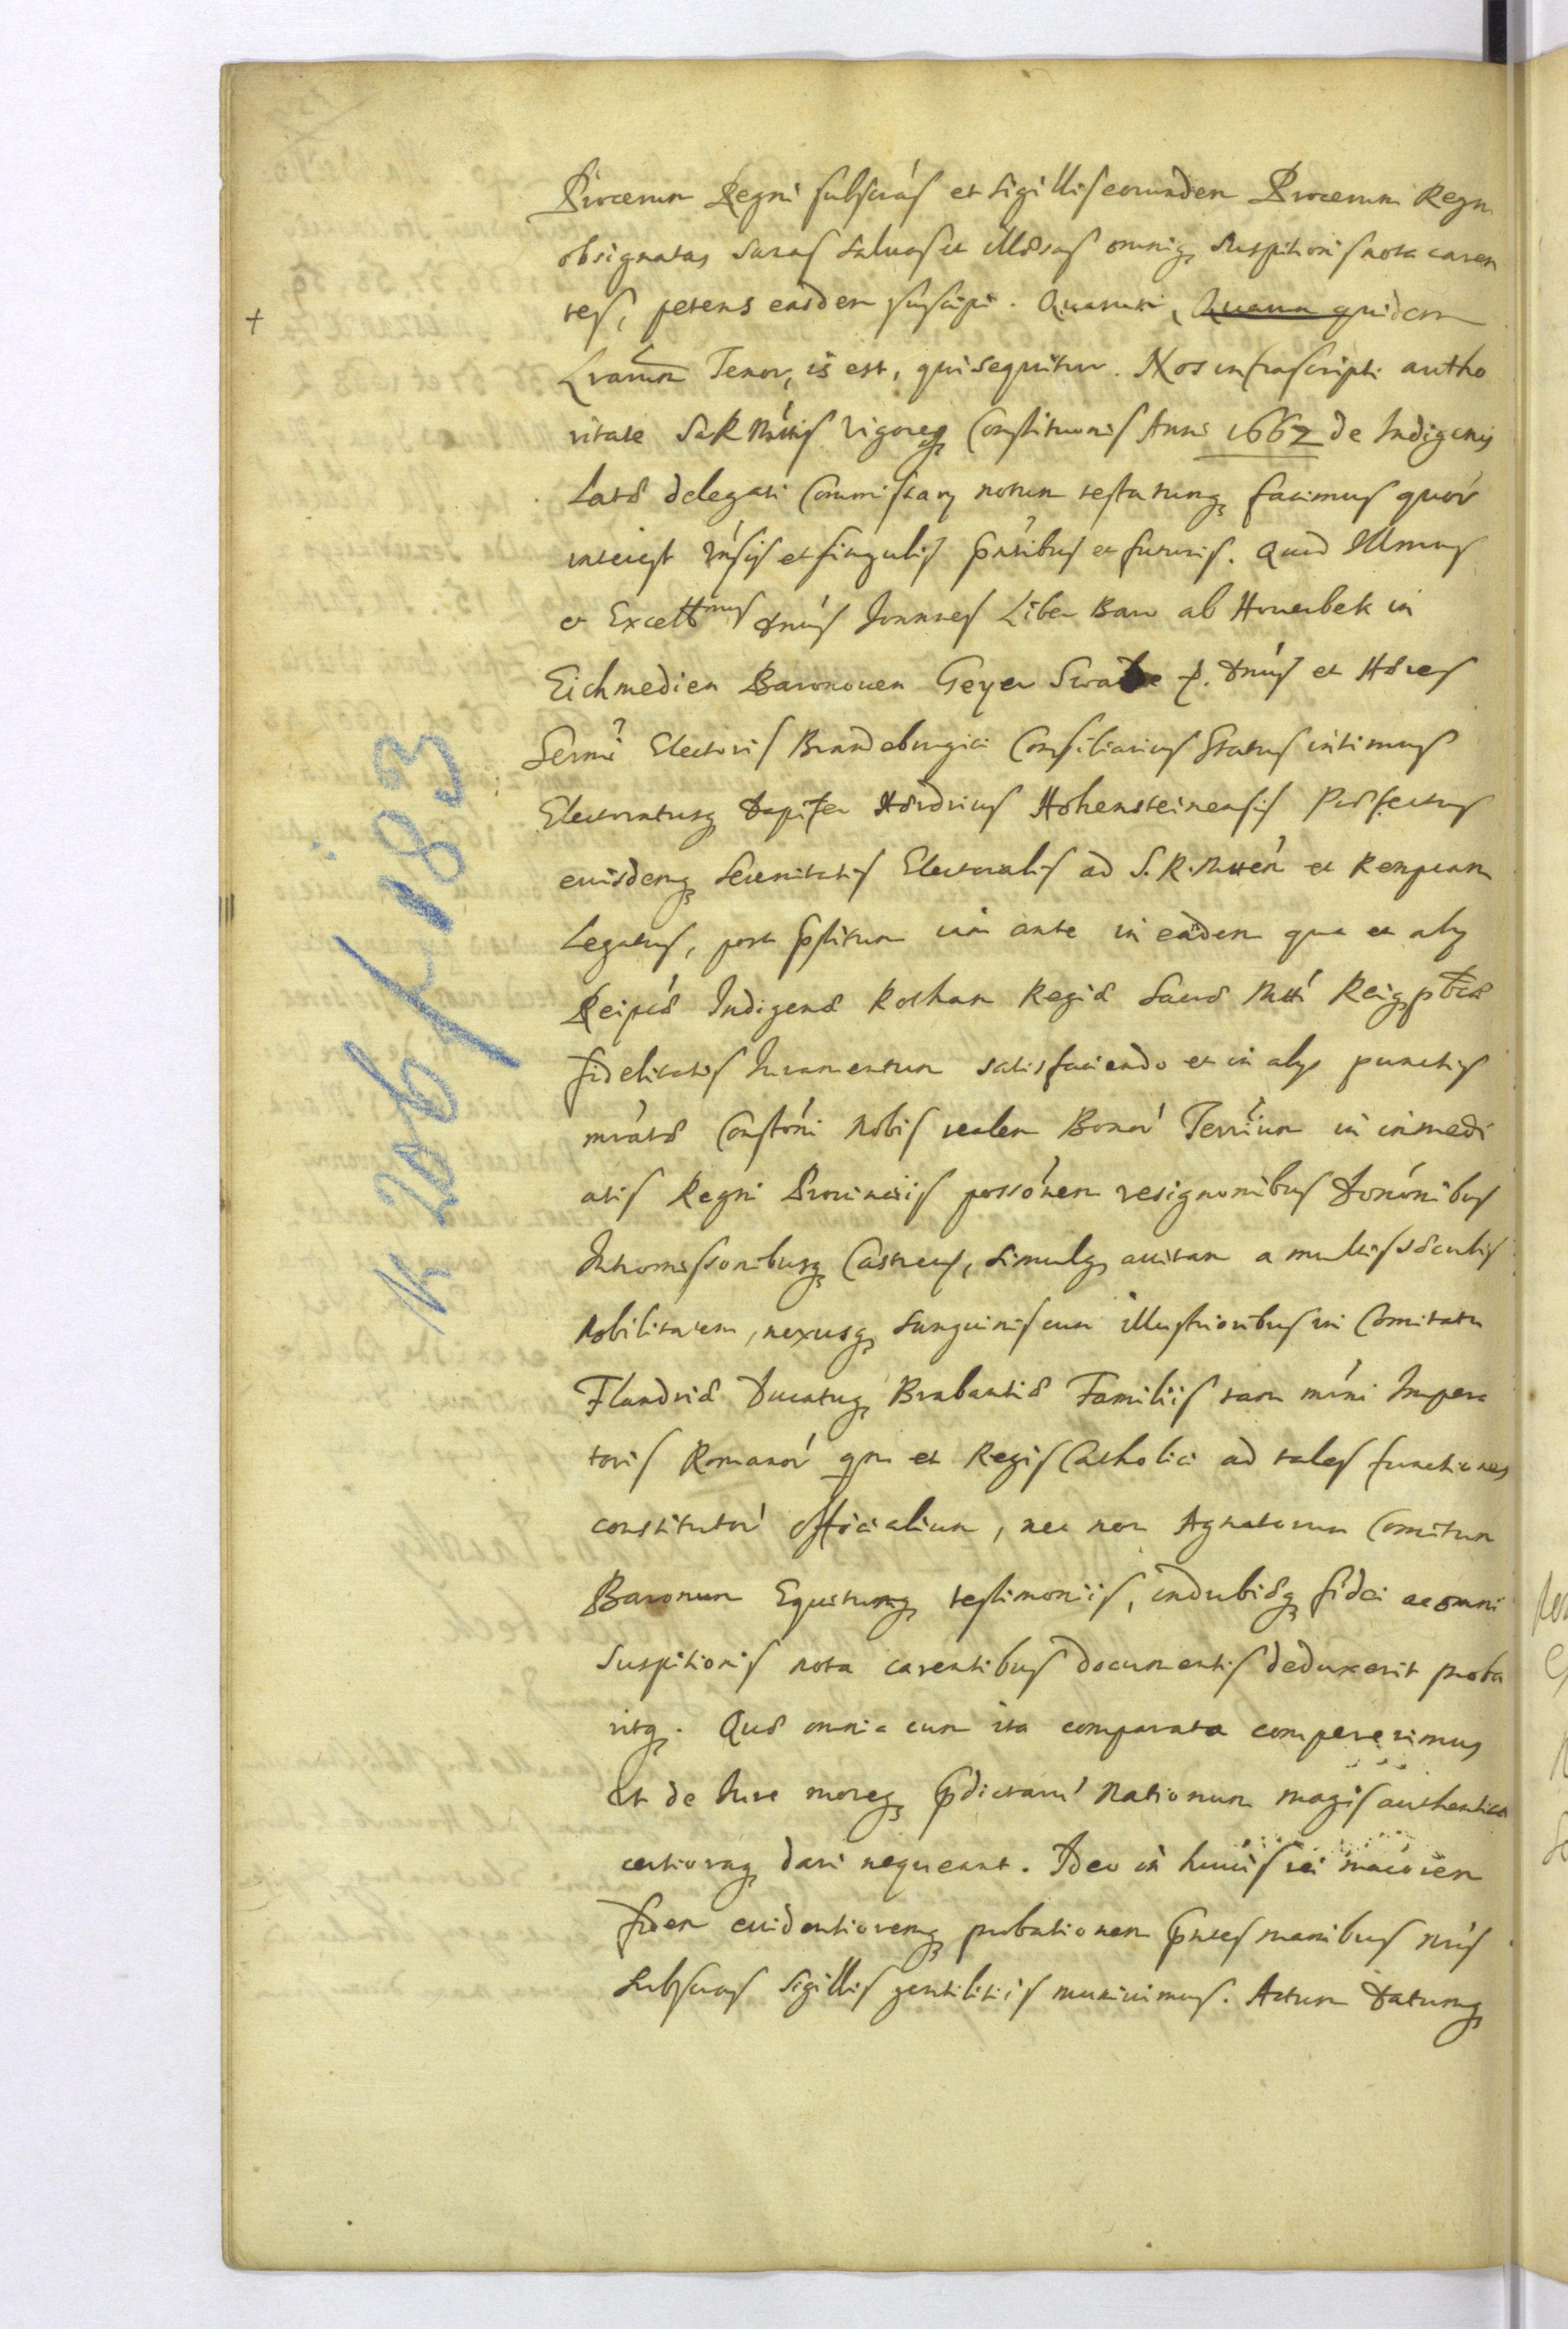 Procerum Regni subscrás et sigillis eorundem Procerum Regn
obsignatas sanas saluas et illæsas omniq; suspitionis nota caren
tes, petens easdem suscipi. Quarum, Quarum quidem
Lrarum Tenor, is est, qui sequitur. Nos infrascripti autho
ritate SaR Mttis vigoreq; Constituonis Anni 1662 de Indigenis
Latæ delegati Commissarij notum testatumq; facimus quor
interest vnsis et singulis pntibus et futuris. Quod Illmus
et Excellmus dnus Joannes Liber Baro ab Houerbek in
Eichmedien Baronouen Geyer Dnus et Hæres
Sermi Electoris Brandeburgici Consiliarius Status intimus
Electoratusq; Dapifer Hærdrius Hohensteinensis Præfectus
eiusdemq; Serenitatis Electoralis ad S. R. Mttem et Rempcam
Legatus, post pstitum iam ante in eadem qua et alij
Reipcæ Indigenæ Rotham Regiæ Sacræ Mtti Reiq; pbcæ
fidelitatis Juramentum satisfaciendo et in alijs punctis
mratæ Constoni nobis realem Bonor Terrium in inmedi
atis Regni Prouinciis possonem resignaonibus Donónibus
Intromissonibusq; Castren, simulq; auitam a multis sæculis
Nobilitatem, nexusq; sanguinis cum illustrioribus in Comitatu
Flandriæ Ducatuq; Brabantiæ Familiis tam mrni Impera
toris Romanor qm et Regis Catholici ad tales functiones
constitutor officialium, nec non Agnatorum Comitum
Baronum Equitumq; testimoniis, indubiæq; fidei ac omni
suspitionis nota carentibus documentis deduxerit proba
ritq;. Quæ omnia cum ita comparata compererimus
et de Jure moreq; pdictarum Nationum magis authentica
certioraq; dari nequeant. Ideo in huius rei maiorem
fidem euidentioremq; probationem pntes manibus nris
subscras sigillis gentilitiis muniuimus. Actum Datumq;
K 206 / 183